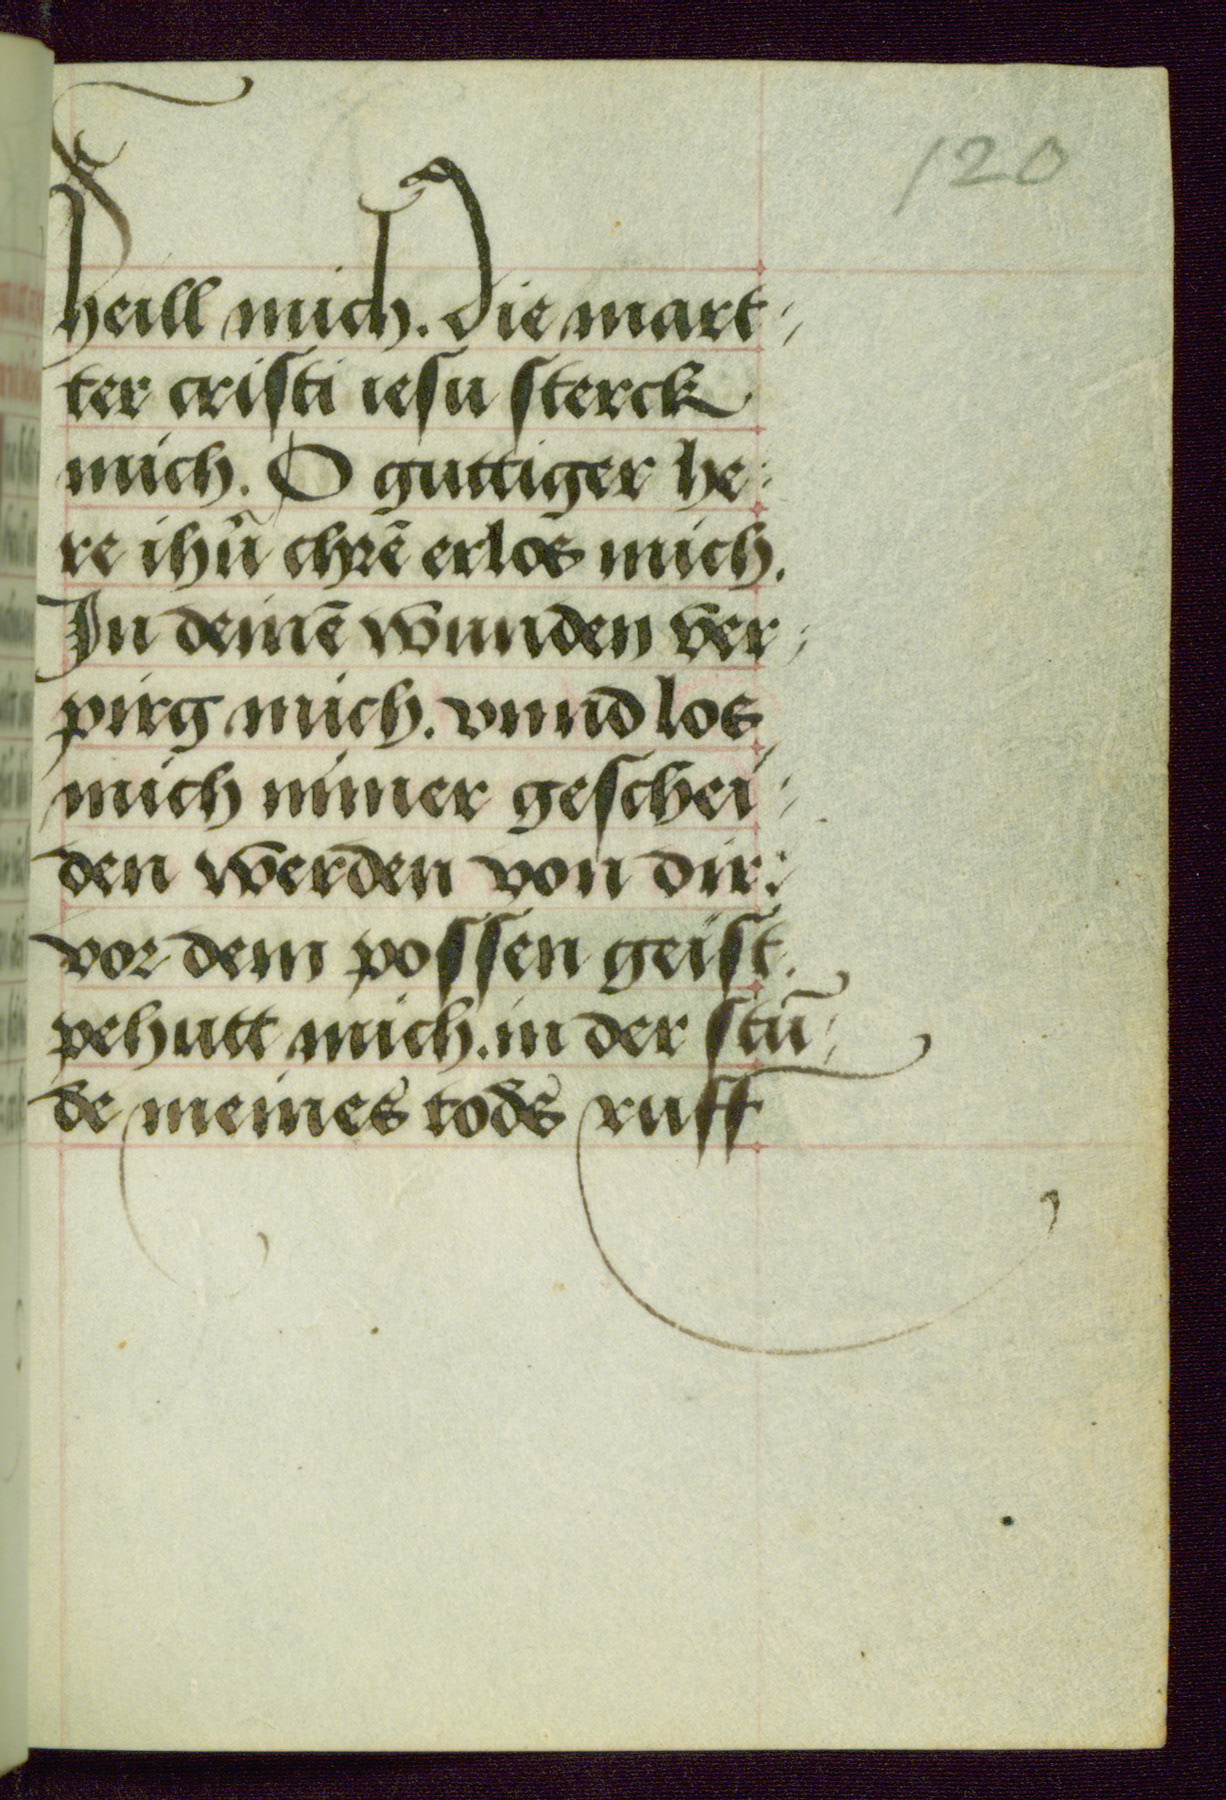 120
heill mich. Die mart⸗
ter cristi iesu sterck
mich. O guttiger he⸗
re ihū chrē erlos mich.
In deinē wunden ver⸗
pirg mich. vnnd los
mich nimer geschei⸗
den werden von dir:
vor dem possen geist.
pehutt mich. in der stū⸗
de meines tods ruff